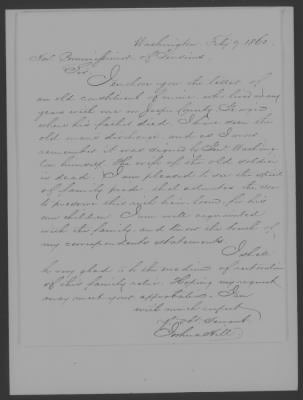 Washington Feby 9, 1860.
Hon. Commissioner of Pensions
Sir.
I enclose you the letter of
an old constituent of mine, who lived many
years with me in Jasper County, Georgia
where his father died. I have seen the
old man's discharge, and as I now
remember it was signed by Genl Washing
ton himself. The wife of the old soldier
is dead. I am pleased to see the spirit
of family pride, that actuates the son
to preserve this rich heir loom for his
own children. I am well acquainted
with the family, and know the truth of
my correspondents statements.
I shall
be very glad to be the medium of restoration
of this family relic. Hoping my request
may meet your approbation. I am
with much respect
Yr. obt. Servant
Joshua Hill